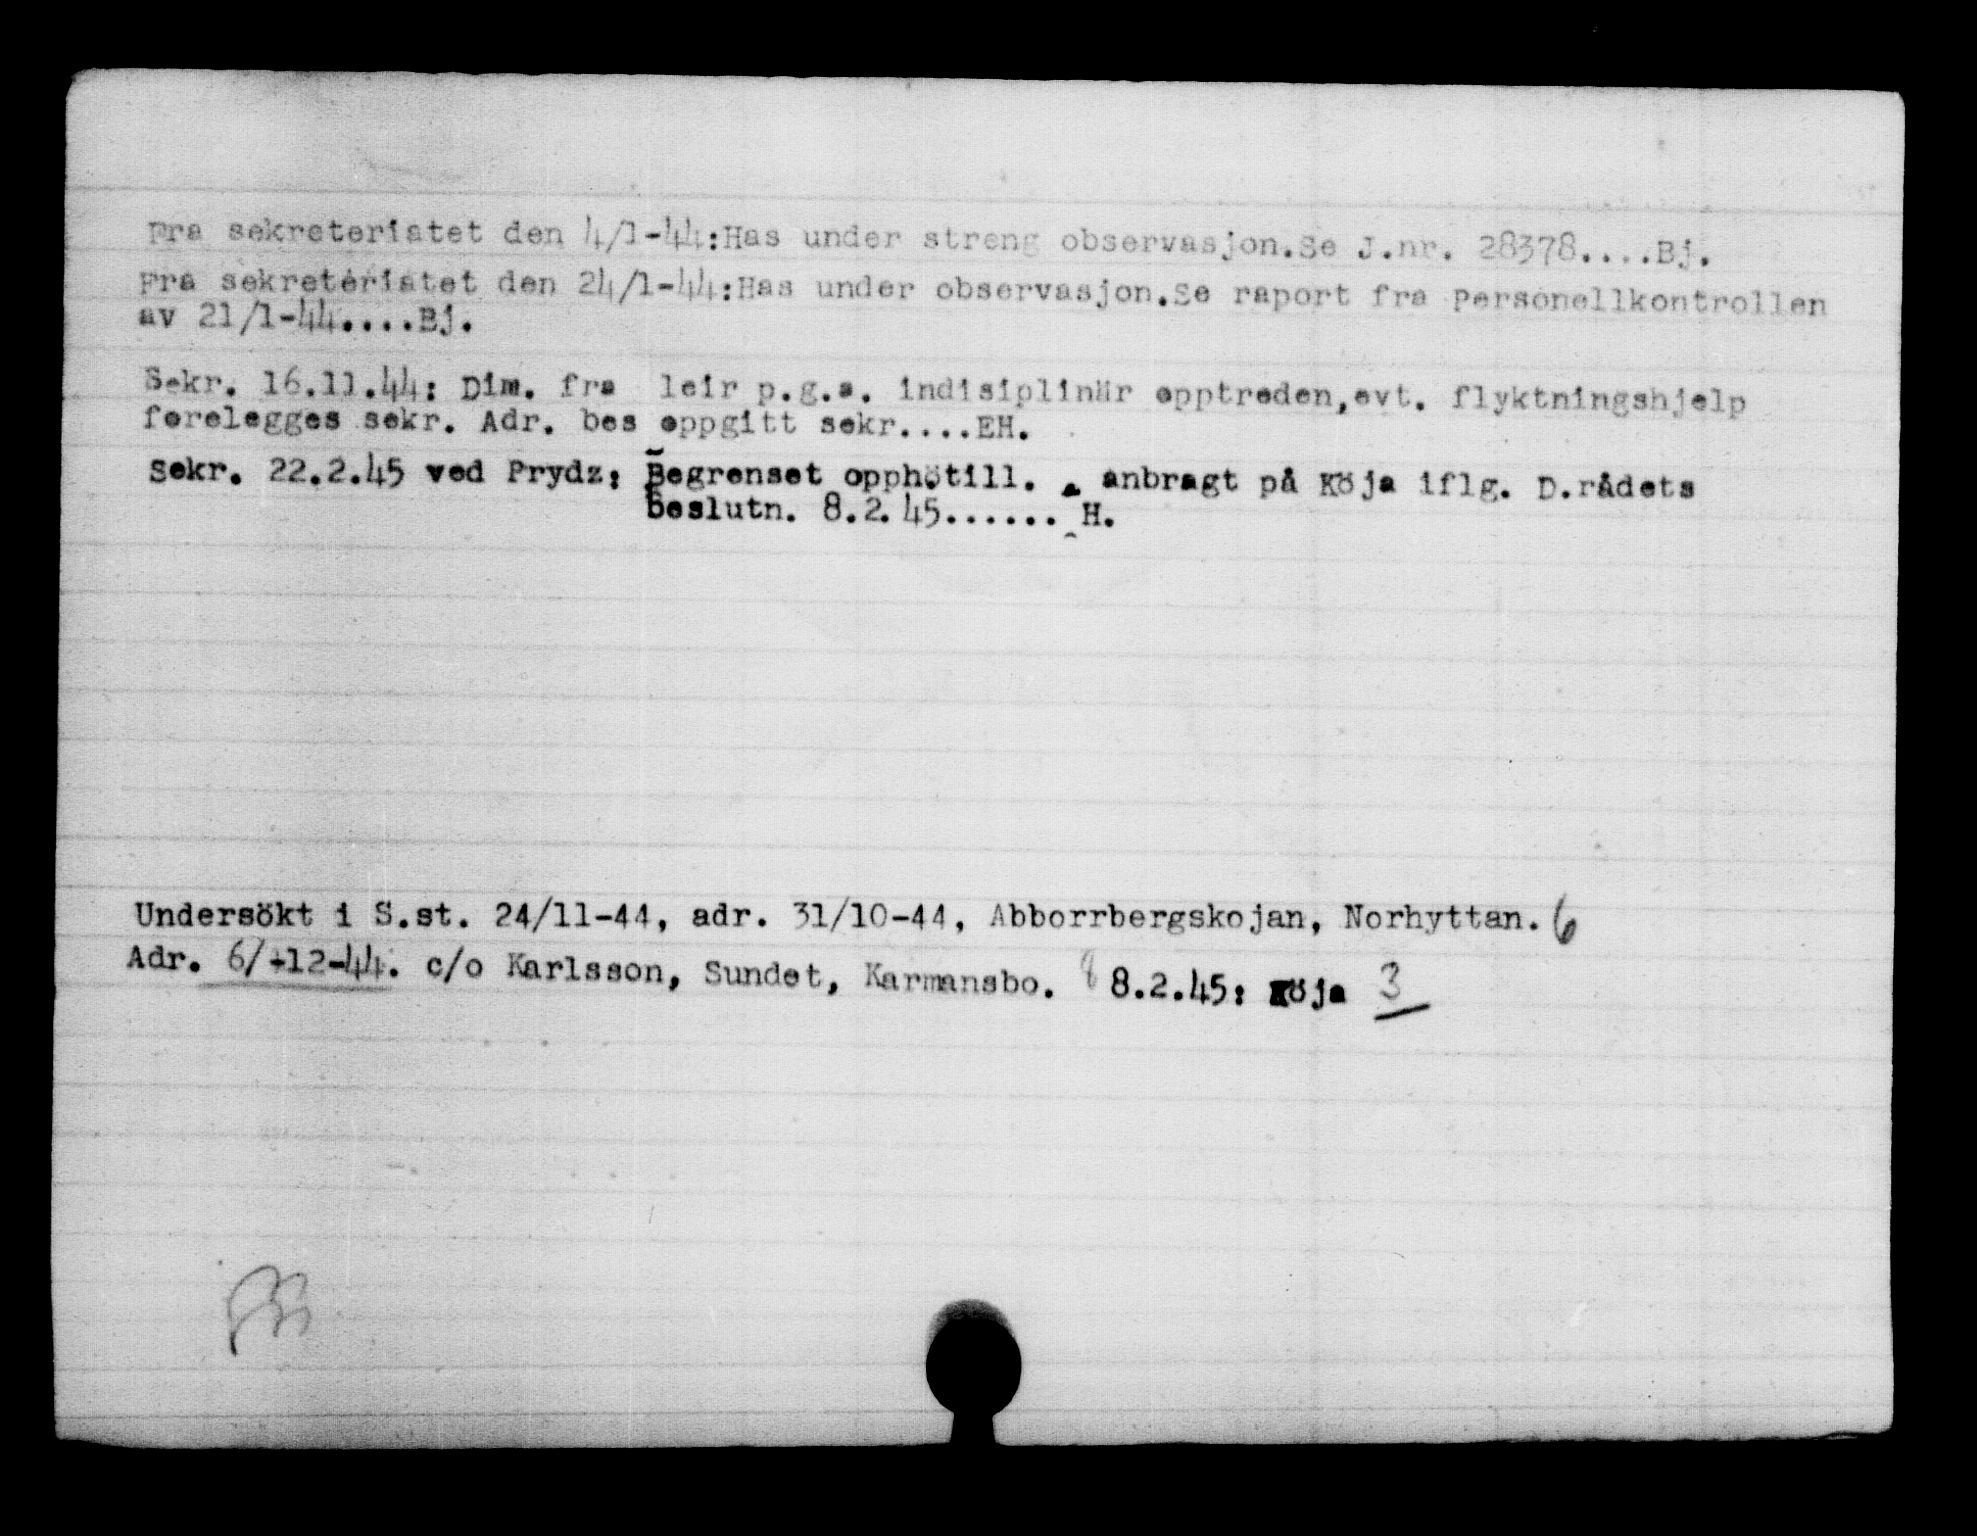 Fra sekreteriatet den 4/1-44:Has under streng observasjon.Se J.nr. 28378....Bj.
Fra sekreteriatet den 24/1-44:Has under observasjon.Se raport fra Personellkontrollen
av 21/1-44....Bj.
Sekr. 16.11.44: Dim. fra leir p.g.a. indisiplinär opptreden,evt. flyktningshjelp
forelegges sekr. Adr. bes oppgitt sekr....EH.
Sekr. 22.2.45 ved Prydz: Begrenset opphötill. anbragt på Köja iflg. D.rådets
beslutn. 8.2.45...... H.
Undersökt i S.st. 24/11-44, adr. 31/10-44, Abborrbergskojan, Norhyttan. 6
Adr. 6/-12-44. c/o Karlsson, Sundet, Karmansbo. 8 8.2.45: Köja 3